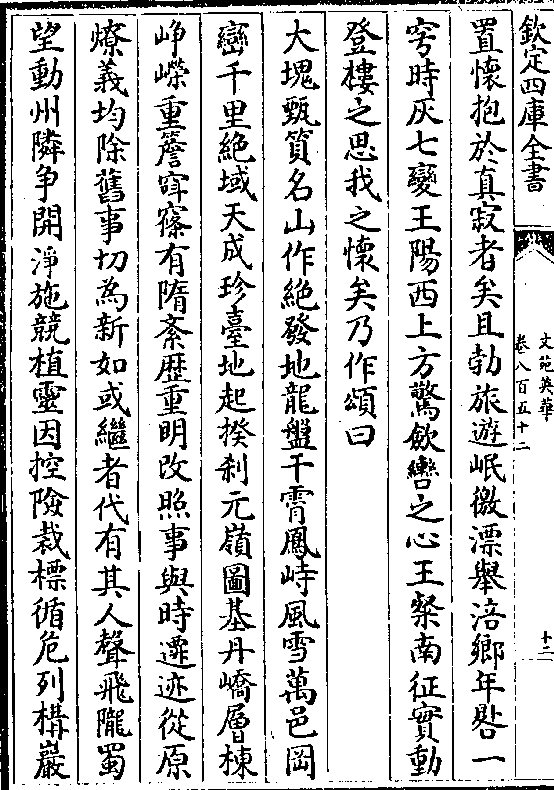 欽定四庫全書
文苑英華
卷八百五十二
十三
置懷抱於真寂者矣且勃旅遊岷徼漂舉涪鄉年踰一
穹時灰七變王陽西上方驚飲轡之心王粲南征實動
登樓之思我之懷矣乃作頌曰
大塊甄質名山作絶發地龍盤干霄鳳峙風雪萬邑岡
巒千里絶域天成珍臺地起揆刹元嶺圖基丹嶠層棟
崢嶸重簷窂寥有隋紊歴重明改照事與時遷迹從原
燎義均除舊事切為新如或繼者代有其人聲飛隴蜀
望動州隣争開淨施競植靈因控險裁標循危列構巖